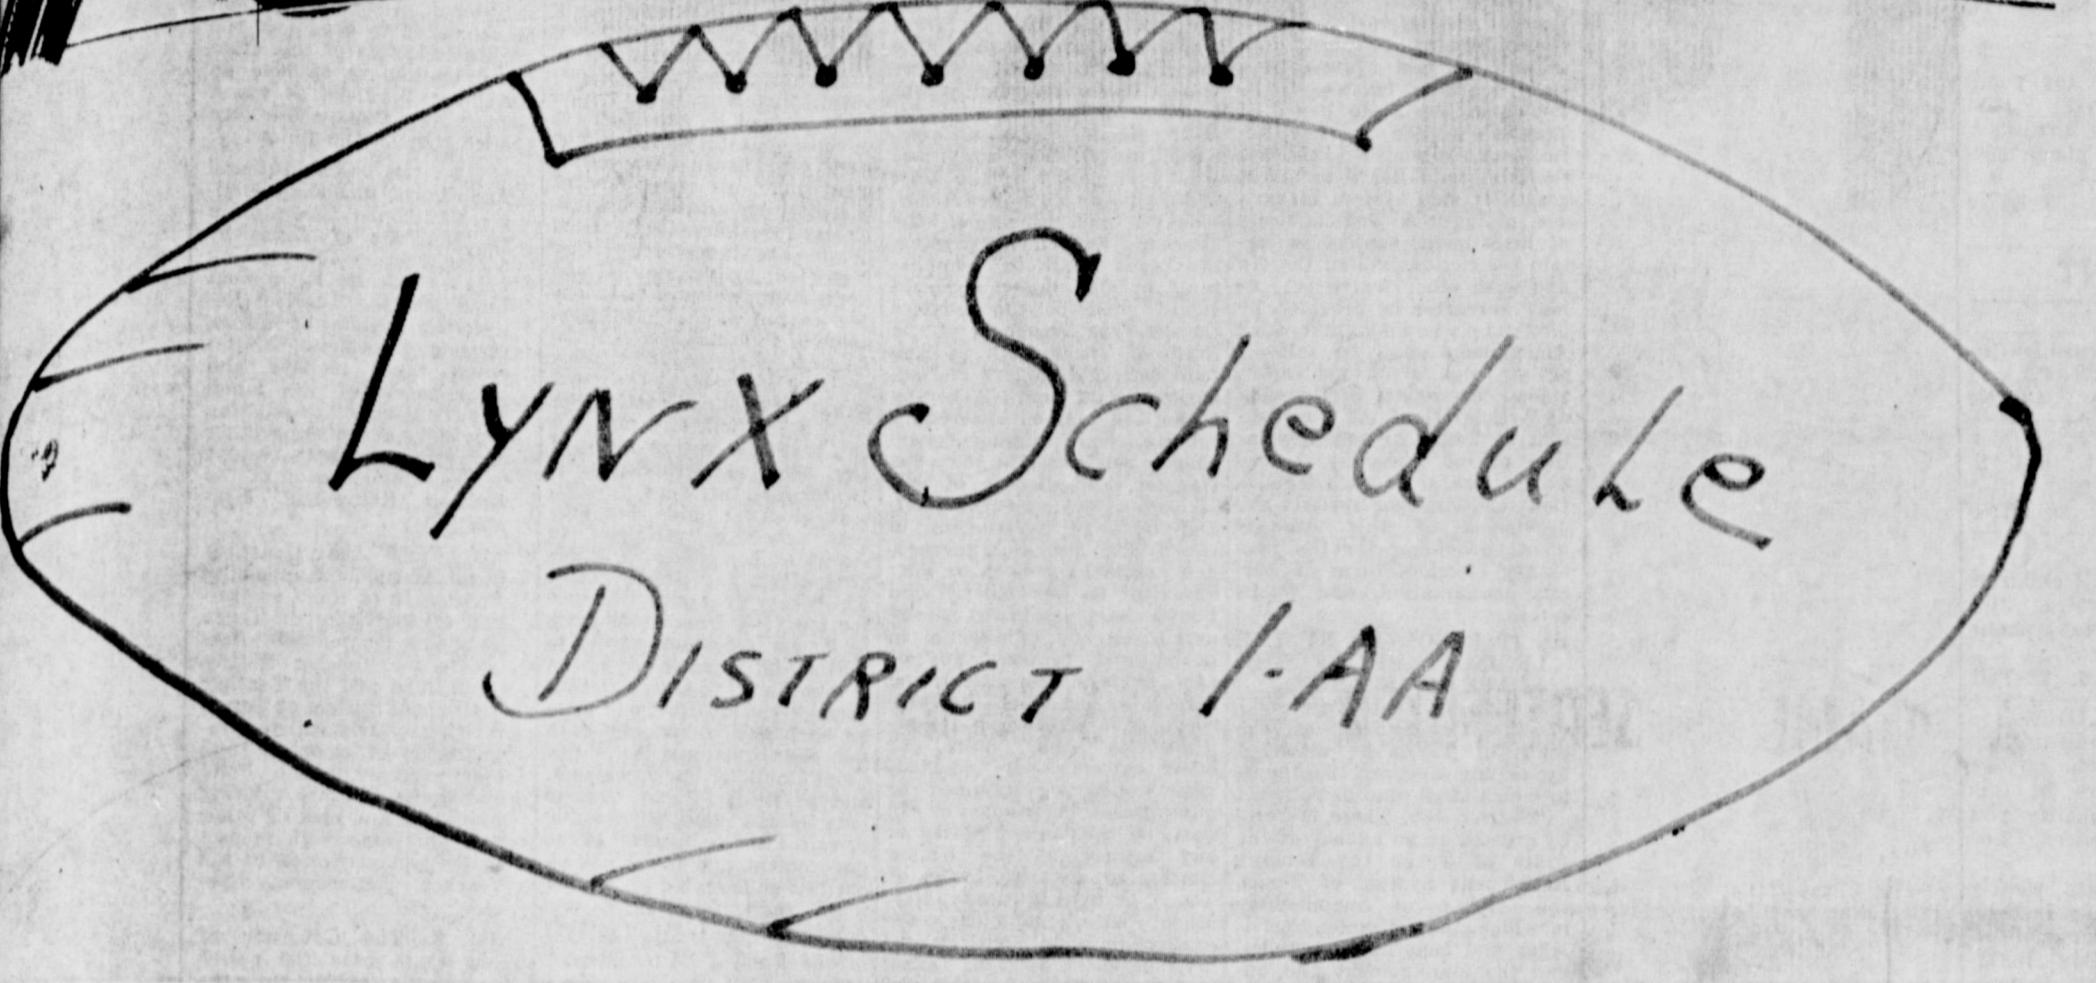 Lynx Schedule
DISTRICT 1-AA